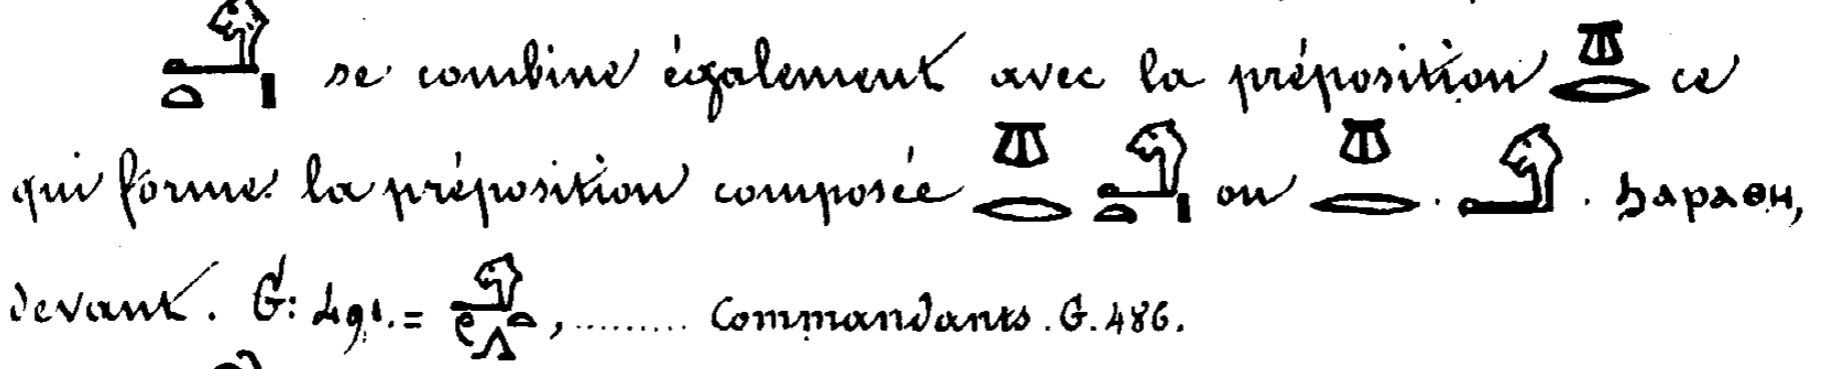 𓄂𓏏𓏤 se combine également avec la préposition 𓌨𓂋 ce
qui forme la préposition composée 𓌨𓂋 𓄂𓏏𓏤 ou 𓌨𓂋 . 𓄂 . ϧⲁⲣⲁⲑⲏ,
devant. G: 491. = 𓄂𓏲𓏏𓂻, ......... Commandants. G. 486.